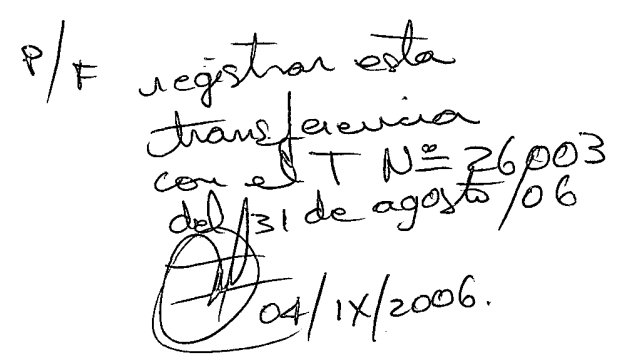 P/F registrar esta
transferencia
con el T Nº 26003
del 31 de agosto/06
04/IX/2006.